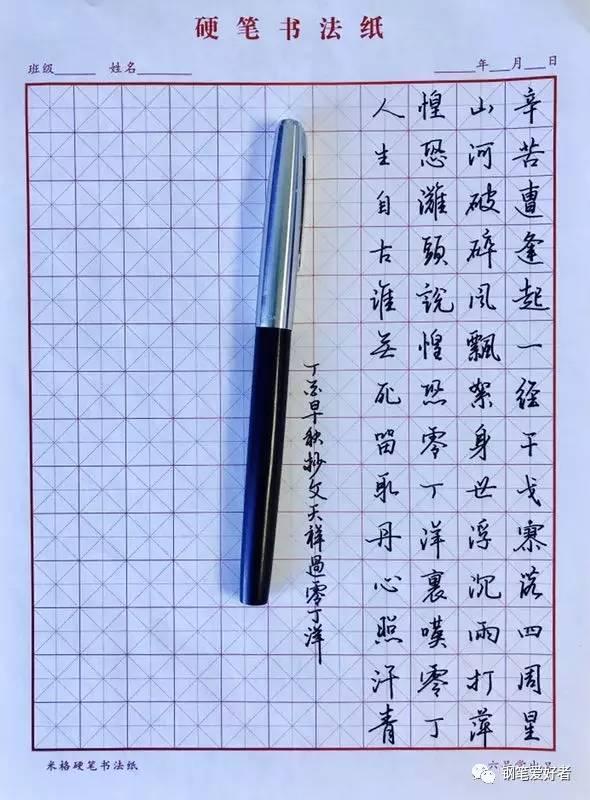 硬笔书法纸
班级____ 姓名____ ____年__月__日
辛苦遭逢起一经干戈寥落四周星
山河破碎风飄絮身世浮沉雨打萍
惶恐灘頭說惶恐零丁洋裏嘆零丁
人生自古谁无死留取丹心照汗青
丁酉早秋抄文天祥過零丁洋
米格硬笔书法纸
钢笔爱好者